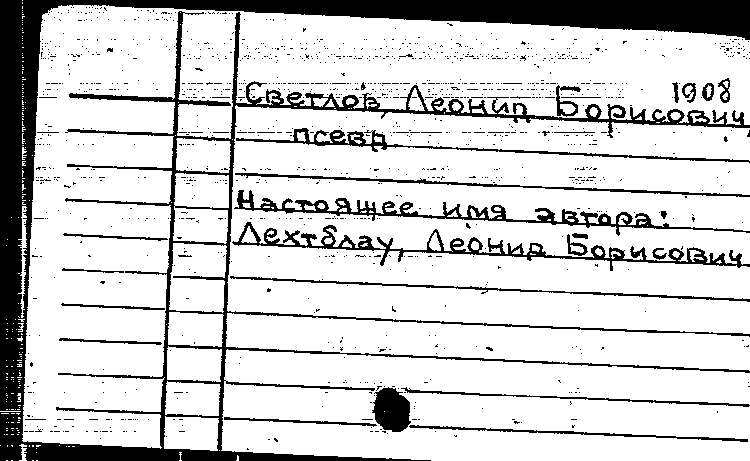 1908
Светлов, Леонид Борисович,
псевд
Настоящее имя автора:
Лехтблау, Леонид Борисович